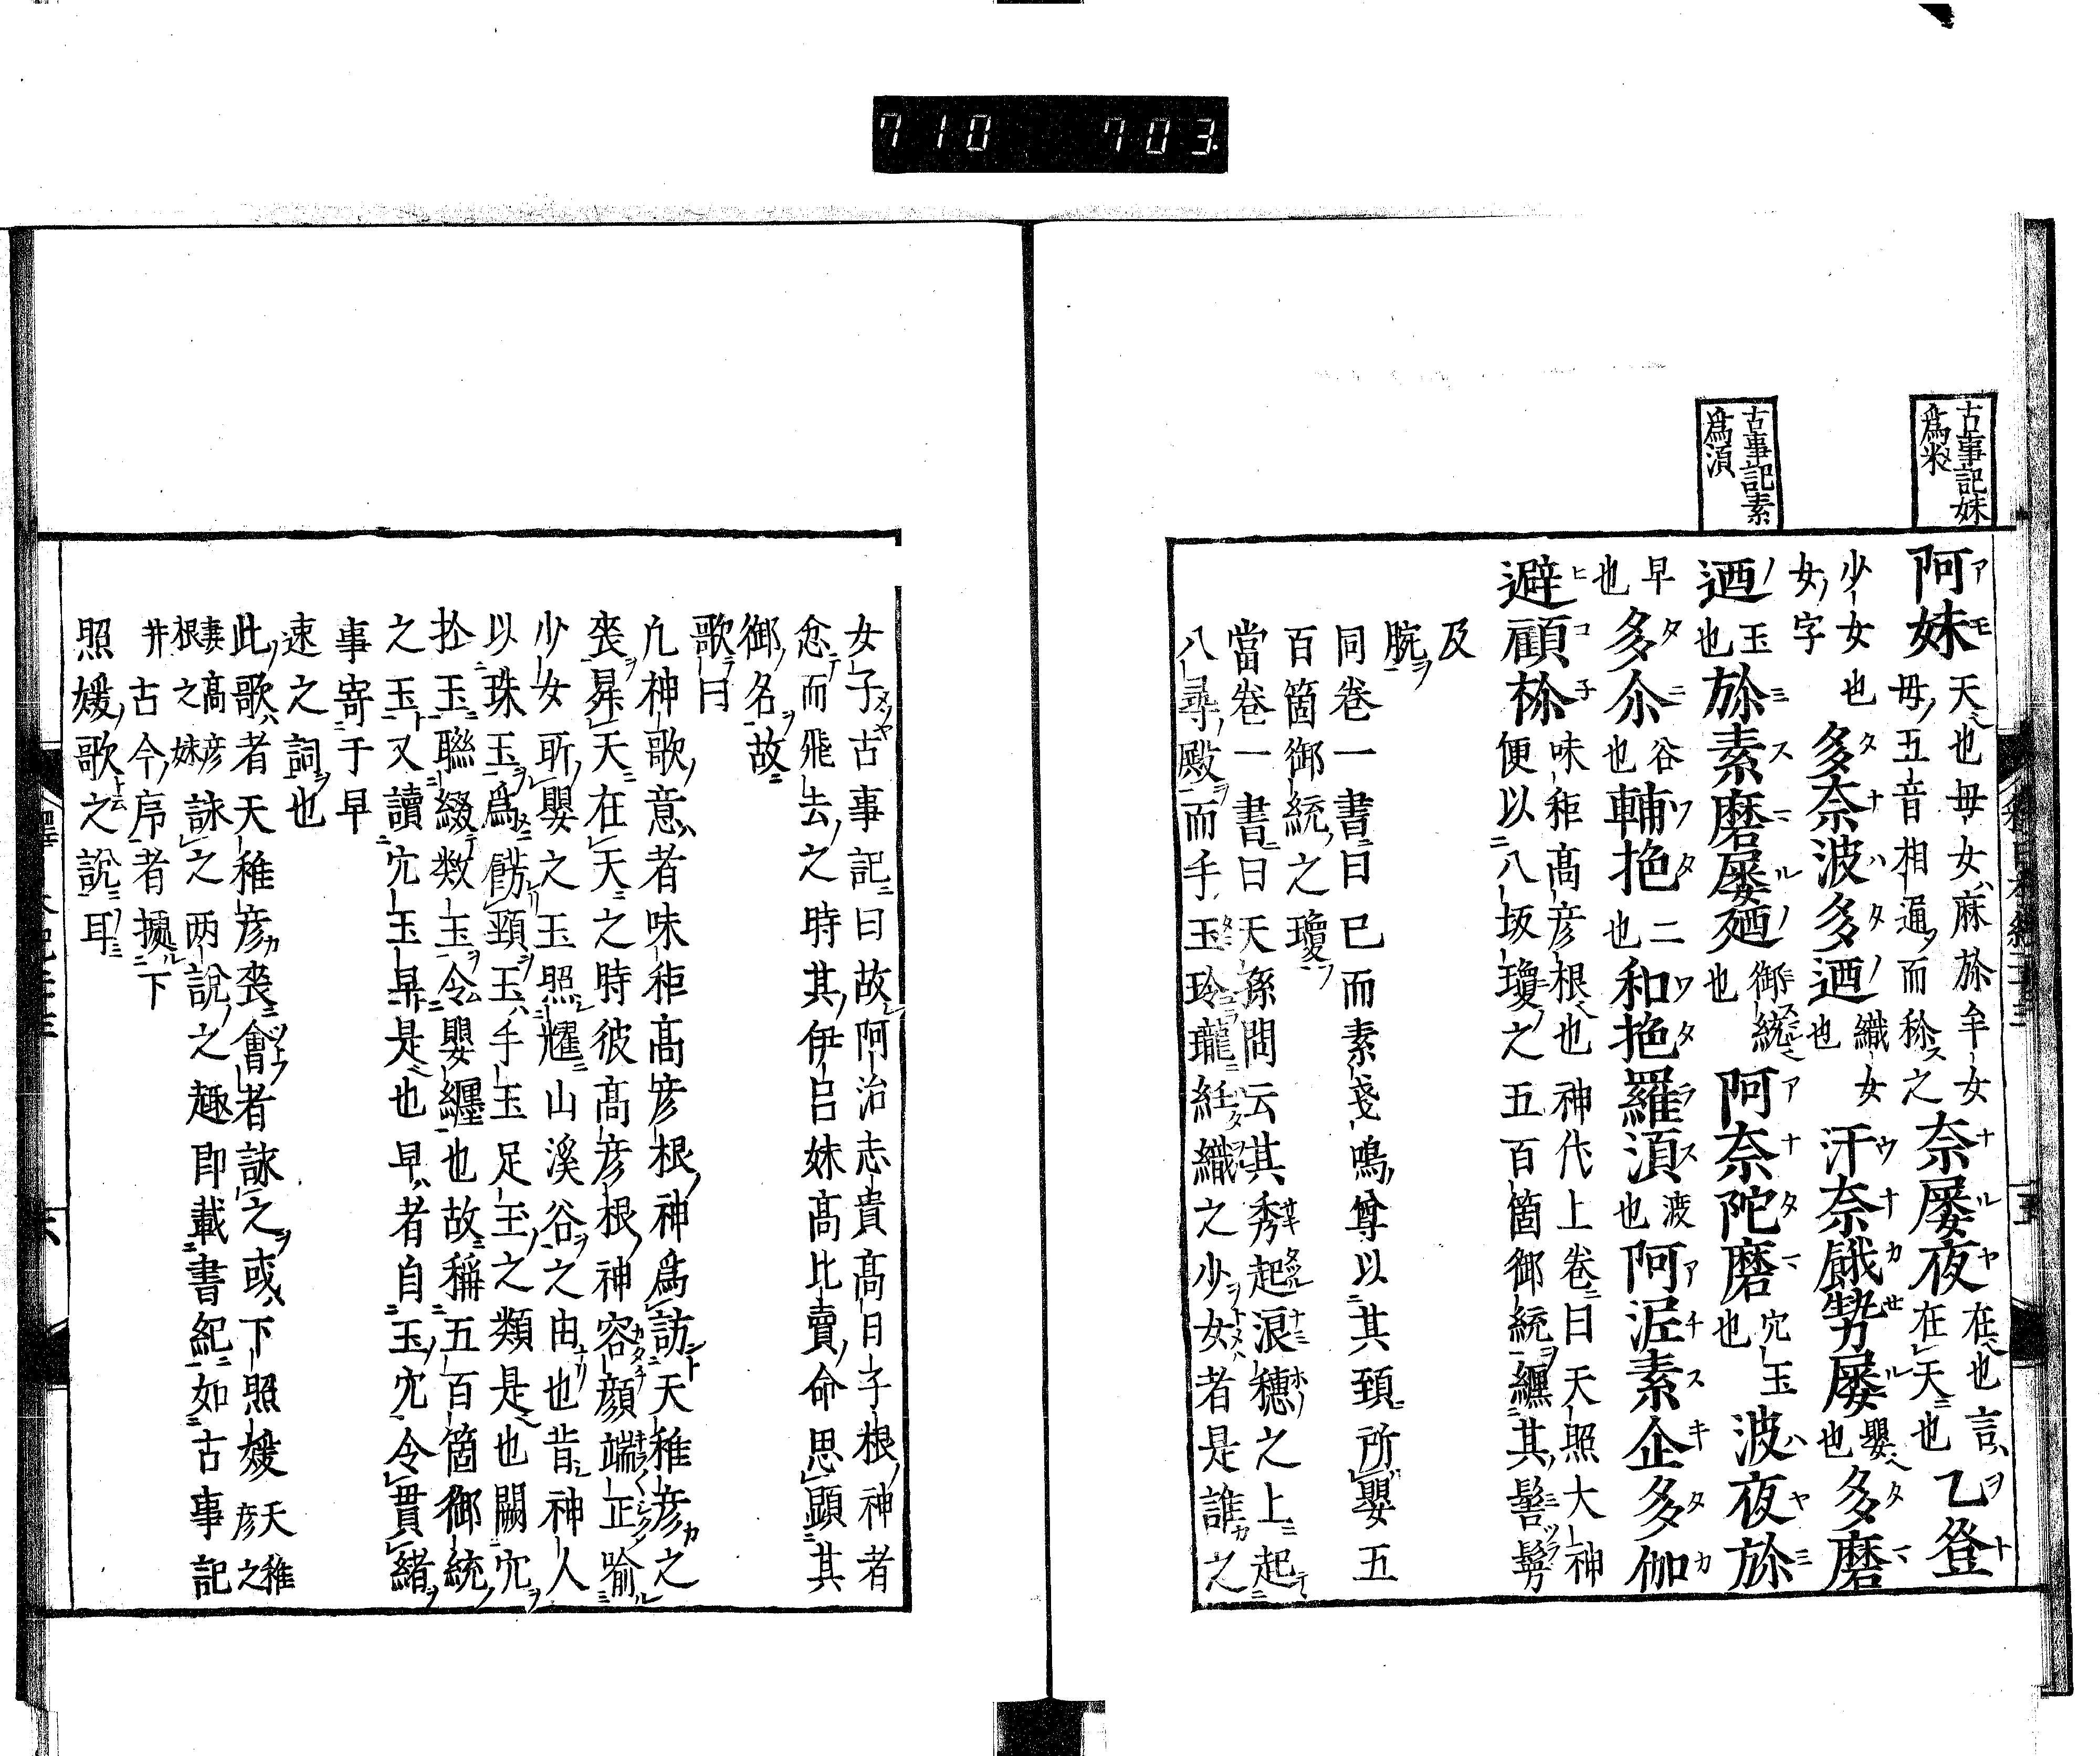 710 703
古事記妹
爲米
古事記素
爲湏
阿妹天也毋女麻旀牟女奈屢夜在也言乙登
毋五音相通而称之在天也
少女也多奈波多迺織女汙奈餓勢屢嬰多磨
女字也也
迺玉旀素磨屢廼御統阿奈陀磨穴玉波夜旀
也也也
早多尒谷輔䒾二和䒾羅湏渡阿泥素企多伽
也也也也
避顧祢味秬高彦根也神代上卷曰天照大神
便以八坂瓊之五百箇御統纒其髻鬘
及
腕
同卷一書曰已而素戔鳴尊以其頚所嬰五
百箇御統之瓊
當卷一書曰天孫問云其秀起浪穗之上起
八尋殿而手玉玲瓏紝織之少女者是誰之
女子古事記曰故阿治志貴高日子根神者
忿而飛去之時其伊呂妹高比賣命思顕其
御名故
歌曰
凢神歌意者味秬高彦根神爲訪天稚彦之
喪昇天在天之時彼高彦根神容顔端正喻
少女所嬰之玉照耀山溪谷之由也昔神人
以珠玉爲餝頸玉手玉足玉之類是也闕穴
拾玉聯綴数玉令嬰纒也故稱五百箇御統
之玉又讀穴玉早是也早者自玉穴令貫緒
事寄于早
速之詞也
此歌者天稚彦喪會者詠之或下照媛天稚
彦之
妻高彦
根之妹詠之两說之趣即載書紀如古事記
并古今序者據下
照媛歌之說耳